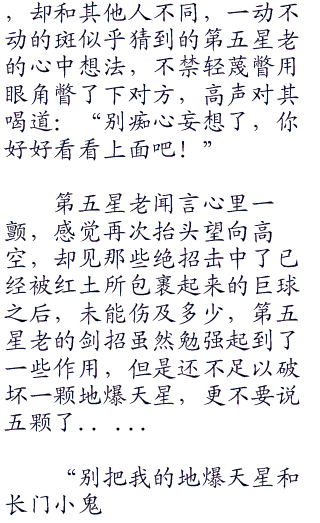 ，却和其他人不同，一动不
动的斑似乎猜到的第五星老
的心中想法，不禁轻蔑瞥用
眼角瞥了下对方，高声对其
喝道：“别痴心妄想了，你
好好看看上面吧！”
第五星老闻言心里一
颤，感觉再次抬头望向高
空，却见那些绝招击中了已
经被红土所包裹起来的巨球
之后，未能伤及多少，第五
星老的剑招虽然勉强起到了
一些作用，但是还不足以破
坏一颗地爆天星，更不要说
五颗了......
“别把我的地爆天星和
长门小鬼